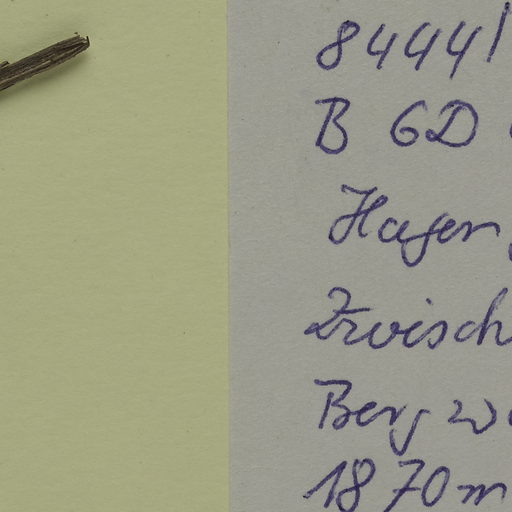 8444/
B GD
Hagen
Zwisch
Berg w
1870m